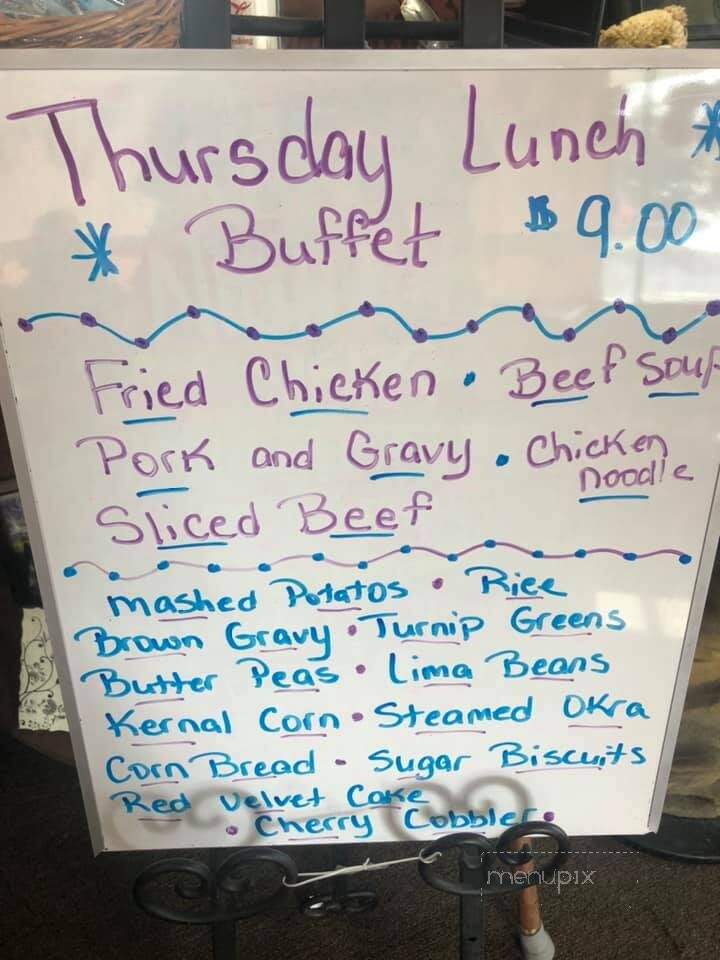 Thursday Lunch
Buffet $ 9.00
Fried Chicken • Beef Soup
Pork and Gravy • Chicken noodle
Sliced Beef
mashed Potatos • Rice
Brown Gravy • Turnip Greens
Butter Peas • Lima Beans
Kernal Corn • Steamed Okra
Corn Bread • Sugar Biscuits
Red Velvet Cake
• Cherry Cobbler •
menupix